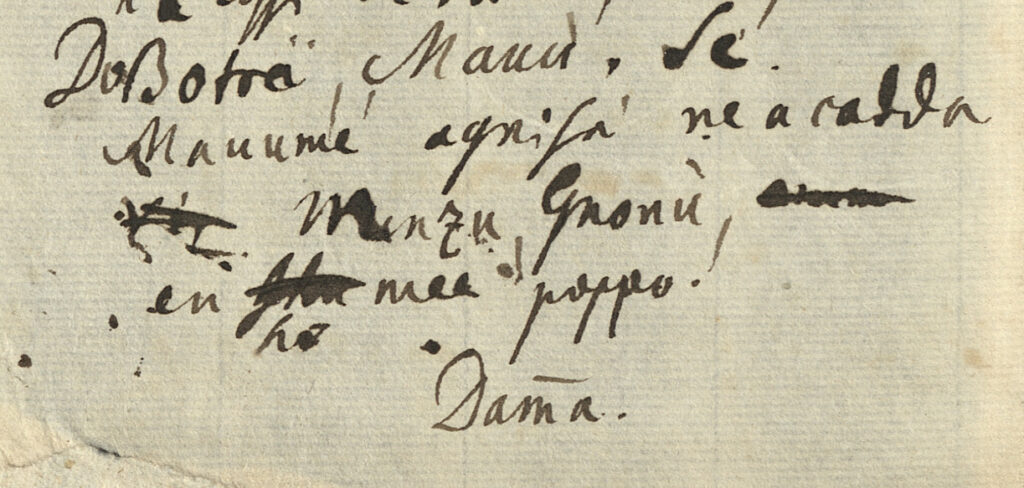 DoBotrei, Mauù. Sé.
Mauumé agnisà ne a cadda
Minzu, Gnonù,
en ho mee poppo!
Dam̄a.